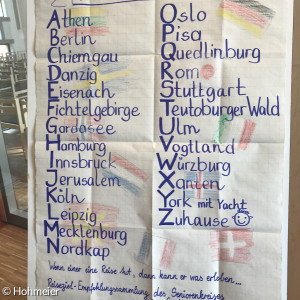 Athen
Berlin
Chiemgau
Danzig
Eisenach
Fichtelgebirge
Gardasee
Hamburg
Innsbruck
Jerusalem
Köln
Leipzig
Mecklenburg
Nordkap
Oslo
Pisa
Quedlinburg
Rom
Stuttgart
Teutoburger Wald
Ulm
Vogtland
Würzburg
Xanten
York mit Yacht
Zuhause
Wenn einer eine Reise tut, dann kann er was erleben...
Reiseziel-Empfehlungssammlung des „Seniorenkreises
© Hohmeier